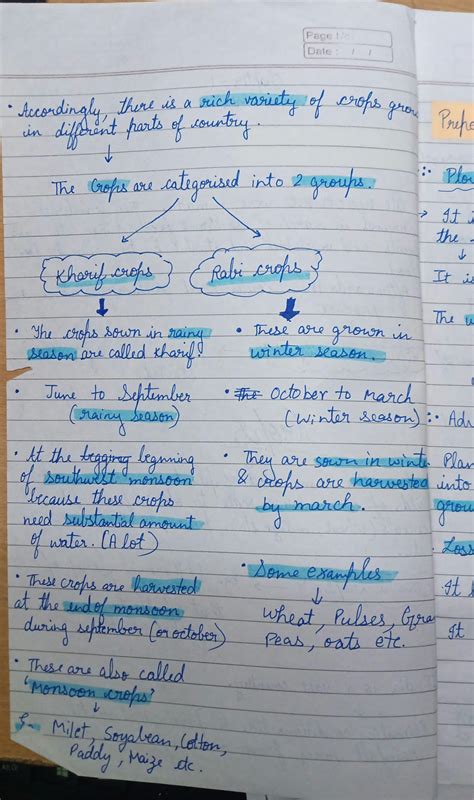 Page No.
Date: / /
• Accordingly, there is a rich variety of crops grow
in different parts of country.
↓
The Crops are categorised into 2 groups.
Kharif crops
Rabi crops
• The crops sown in rainy
season are called Kharif.
• June to September
(rainy season)
• At the begging begnning
of southwest monsoon
because these crops
need substantial amount
of water. (A lot)
• These crops are harvested
at the end of monsoon
during september (or october)
• These are also called
'Monsoon crops'
↓
Milet, Soyabean, Cotton,
Paddy, Maize etc.
• These are grown in
winter season.
• The October to march
(Winter season)
• They are sown in winte
& crops are harvested
by march.
• Some examples
↓
Wheat, Pulses, Gra
Peas, oats etc.
Prepa
Plou
→ It i
the
↓
It is
The u
Adv
Plan
into
grou
Loss
It s
It